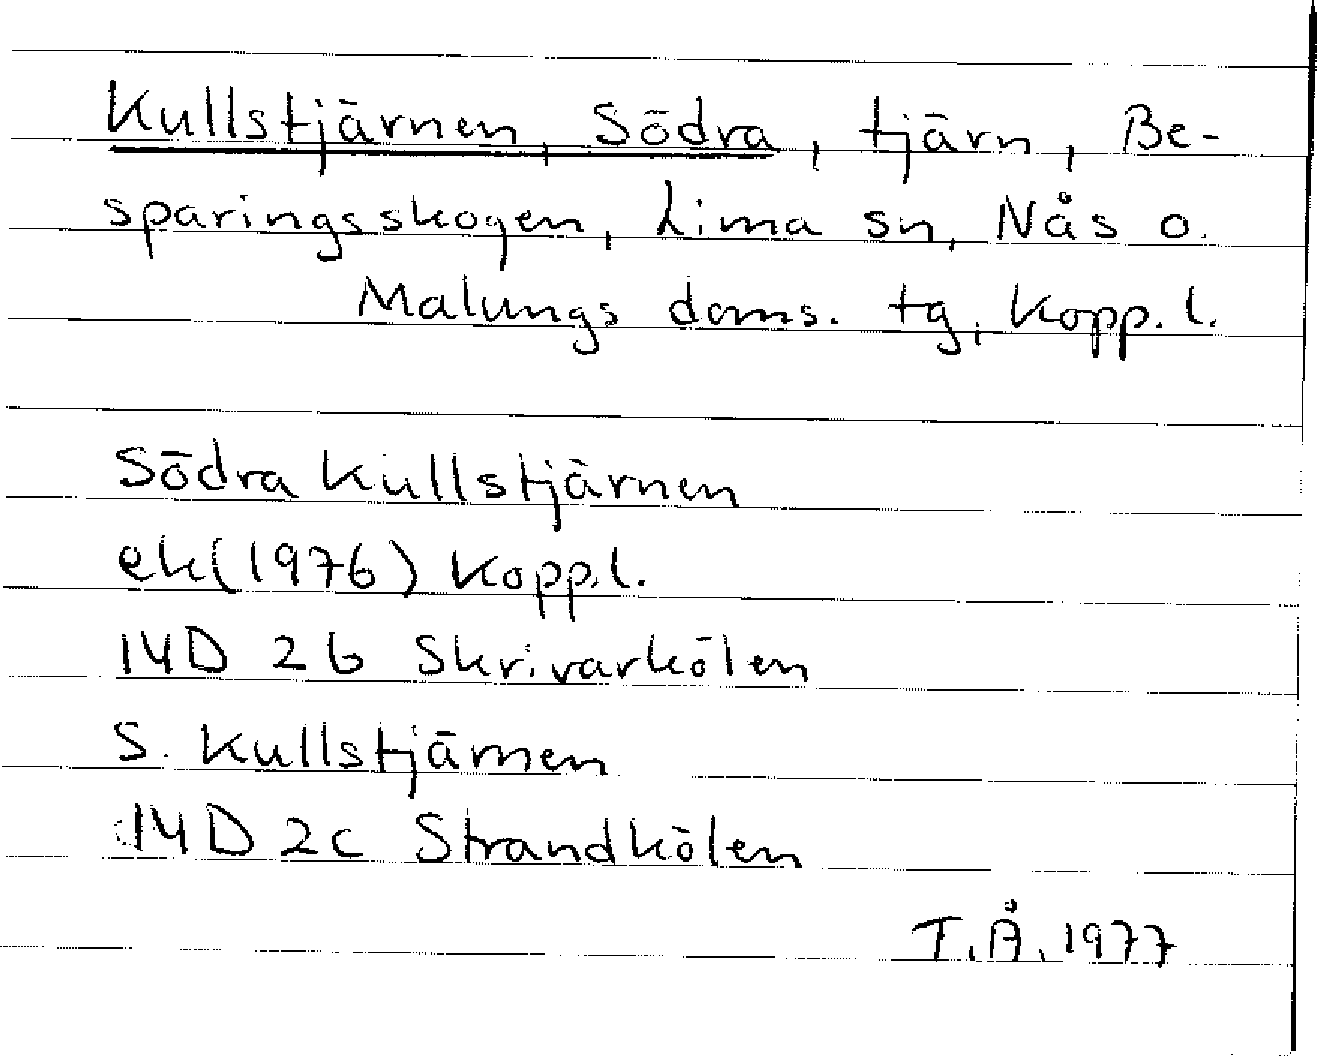 Kullstjärnen, Södra, tjärn, Be-
sparingsskogen, Lima sn, Nås o.
Malungs doms. tg, Kopp. l.
Södra Kullstjärnen
ek(1976) Kopp.l.
14D 2b Skrivarkölen
S. Kullstjärnen
14D 2c Strandkölen
T.Å. 1977